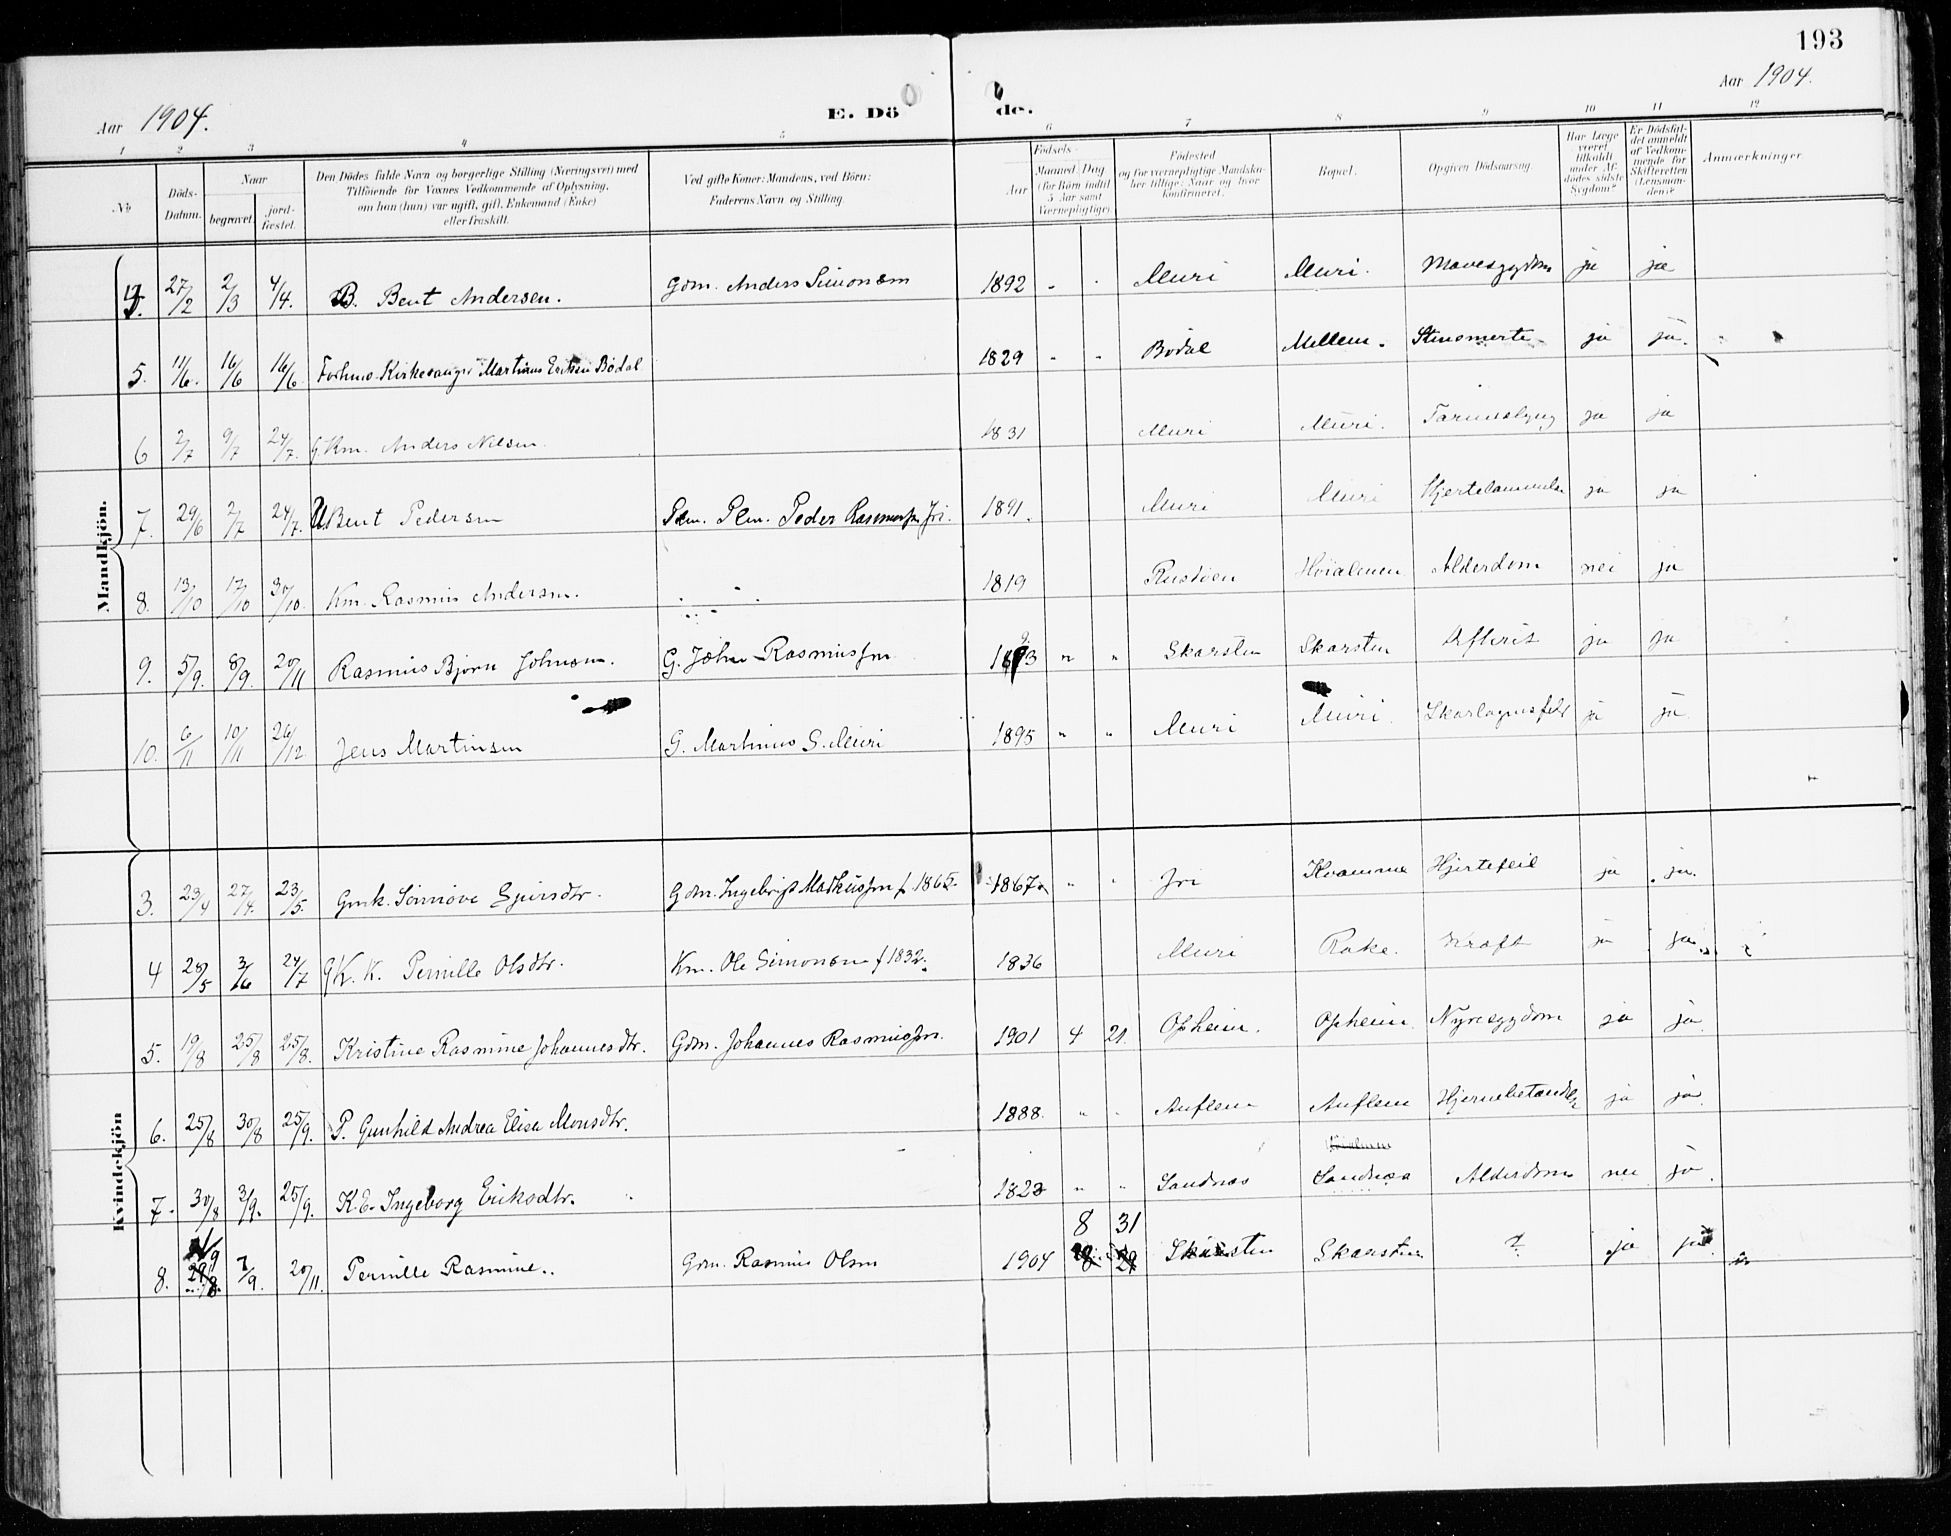 193
Aar 1904.
E. Dö
de.
Aar 1904.
1 2 3 4 5 6 7 8 9 10 11 12
No
Döds-Datum.
Naar
begravet.
jordfæstet.
Den Dödes fulde Navn og borgerlige Stilling (Næringsvei) med
Tilföiende for Voxnes Vedkommende af Oplysning,
om han (hun) var ugift, gift, Enkemand (Enke)
eller fraskilt.
Ved gifte Koner: Mandens, ved Börn:
Faderens Navn og Stilling.
Födsels-
Aar
Maaned Dag
(for Börn indtil
5 Aar samt
Værnepligtige).
Födested
og for værnepligtige Mandskaber tillige: Naar og hvor
konfirmeret.
Bopæl.
Opgiven Dödsaarsag.
Har Læge
været
tilkaldt
under Afdödes sidste
Sygdom?
Er Dödsfaldet anmeldt
af Vedkommende for
Skifteretten
(Lensmanden)?
Anmærkninger
Mandkjön.
4. 27/2 2/3 4/4. B. Bent Andersen. Gdm. Anders Simonsen 1892 " " Muri Muri. Mavesygdom ja ja
5. 11/6. 16/6 16/6. Forhenv. Kirkesanger Martinus Eriksen Bödal 1829 " " Bödal Mellem. ja ja.
6 2/7 9/7 24/7. G. Km. Anders Nilsen. 1831 Muri Muri. Tarmeslyng ja ja
7. 29/6 2/7 24/7. U. Bent Pedersen Plm. Peder Rasmussen Fri. 1891. Muri Muri ja ja
8. 13/10 17/10 30/10. Km. Rasmus Andersen. 1819 Rustöen Alderdom nei ja
9. 5/9. 8/9. 20/11 Rasmus Björn Johnsen. G. John Rasmussen 1893 " " Skarsten Skarsten ja ja
10. 6/11 10/11 26/12 Jens Martinsen G. Martinus S. Muri 1895 " " Muri Muri. Skarlagensfeber ja ja
Kvindekjön
3. 23/4 27/4. 23/5. Gmk. Synnöve Sjursdtr. Gdm. Ingebrigt Mathiussen f 1865. 1867. " " Fri Kvamme Hjertefeil ja ja.
4 28/5 3/6 24/7 G K. K. Pernille Olsdtr. Km. Ole Simonsen f 1832. 1836 Muri Rake. Kræft ja ja
5. 19/8 25/8 25/8. Kristine Rasmine Johannesdtr. Gdm. Johannes Rasmussen. 1901 4 21. Opheim. Opheim. Nyresygdom ja ja
6. 25/8 30/8 25/9. P. Gunhild Andrea Elisa Monsdtr. 1888. " " Auflem Auflem Hjernebetændelse ja ja
7. 30/8 3/9. 25/9. K.E. Ingeborg Eriksdtr. 1823 " " Sandnæs Sandnæs Alderdom nei ja.
8. 29/8 7/9. 20/11. Pernille Rasmine. Gdm. Rasmus Olsen 1904 8 31 Skarsten Skarsten ? ja ja.